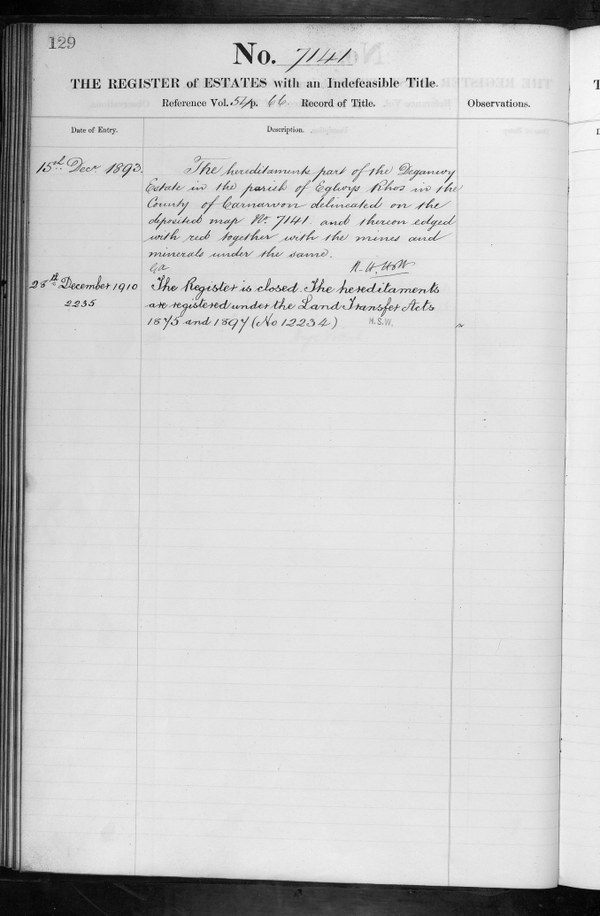 129
No. 7141
THE REGISTER of ESTATES with an Indefeasible Title.
Reference Vol. 54 p. 66 Record of Title.
Observations.
Date of Entry.
Description.
15th Decr 1893.
The hereditaments part of the Deganwy
Estate in the parish of Eglwys Rhos in the
County of Carnarvon delineated on the
deposited map No. 7141 and thereon edged
with red together with the mines and
minerals under the same.
R. H. Holt
28th December 1910
2235
The Register is closed. The hereditaments
are registered under the Land Transfer Acts
1875 and 1897 (No 12234)
H.S.W.